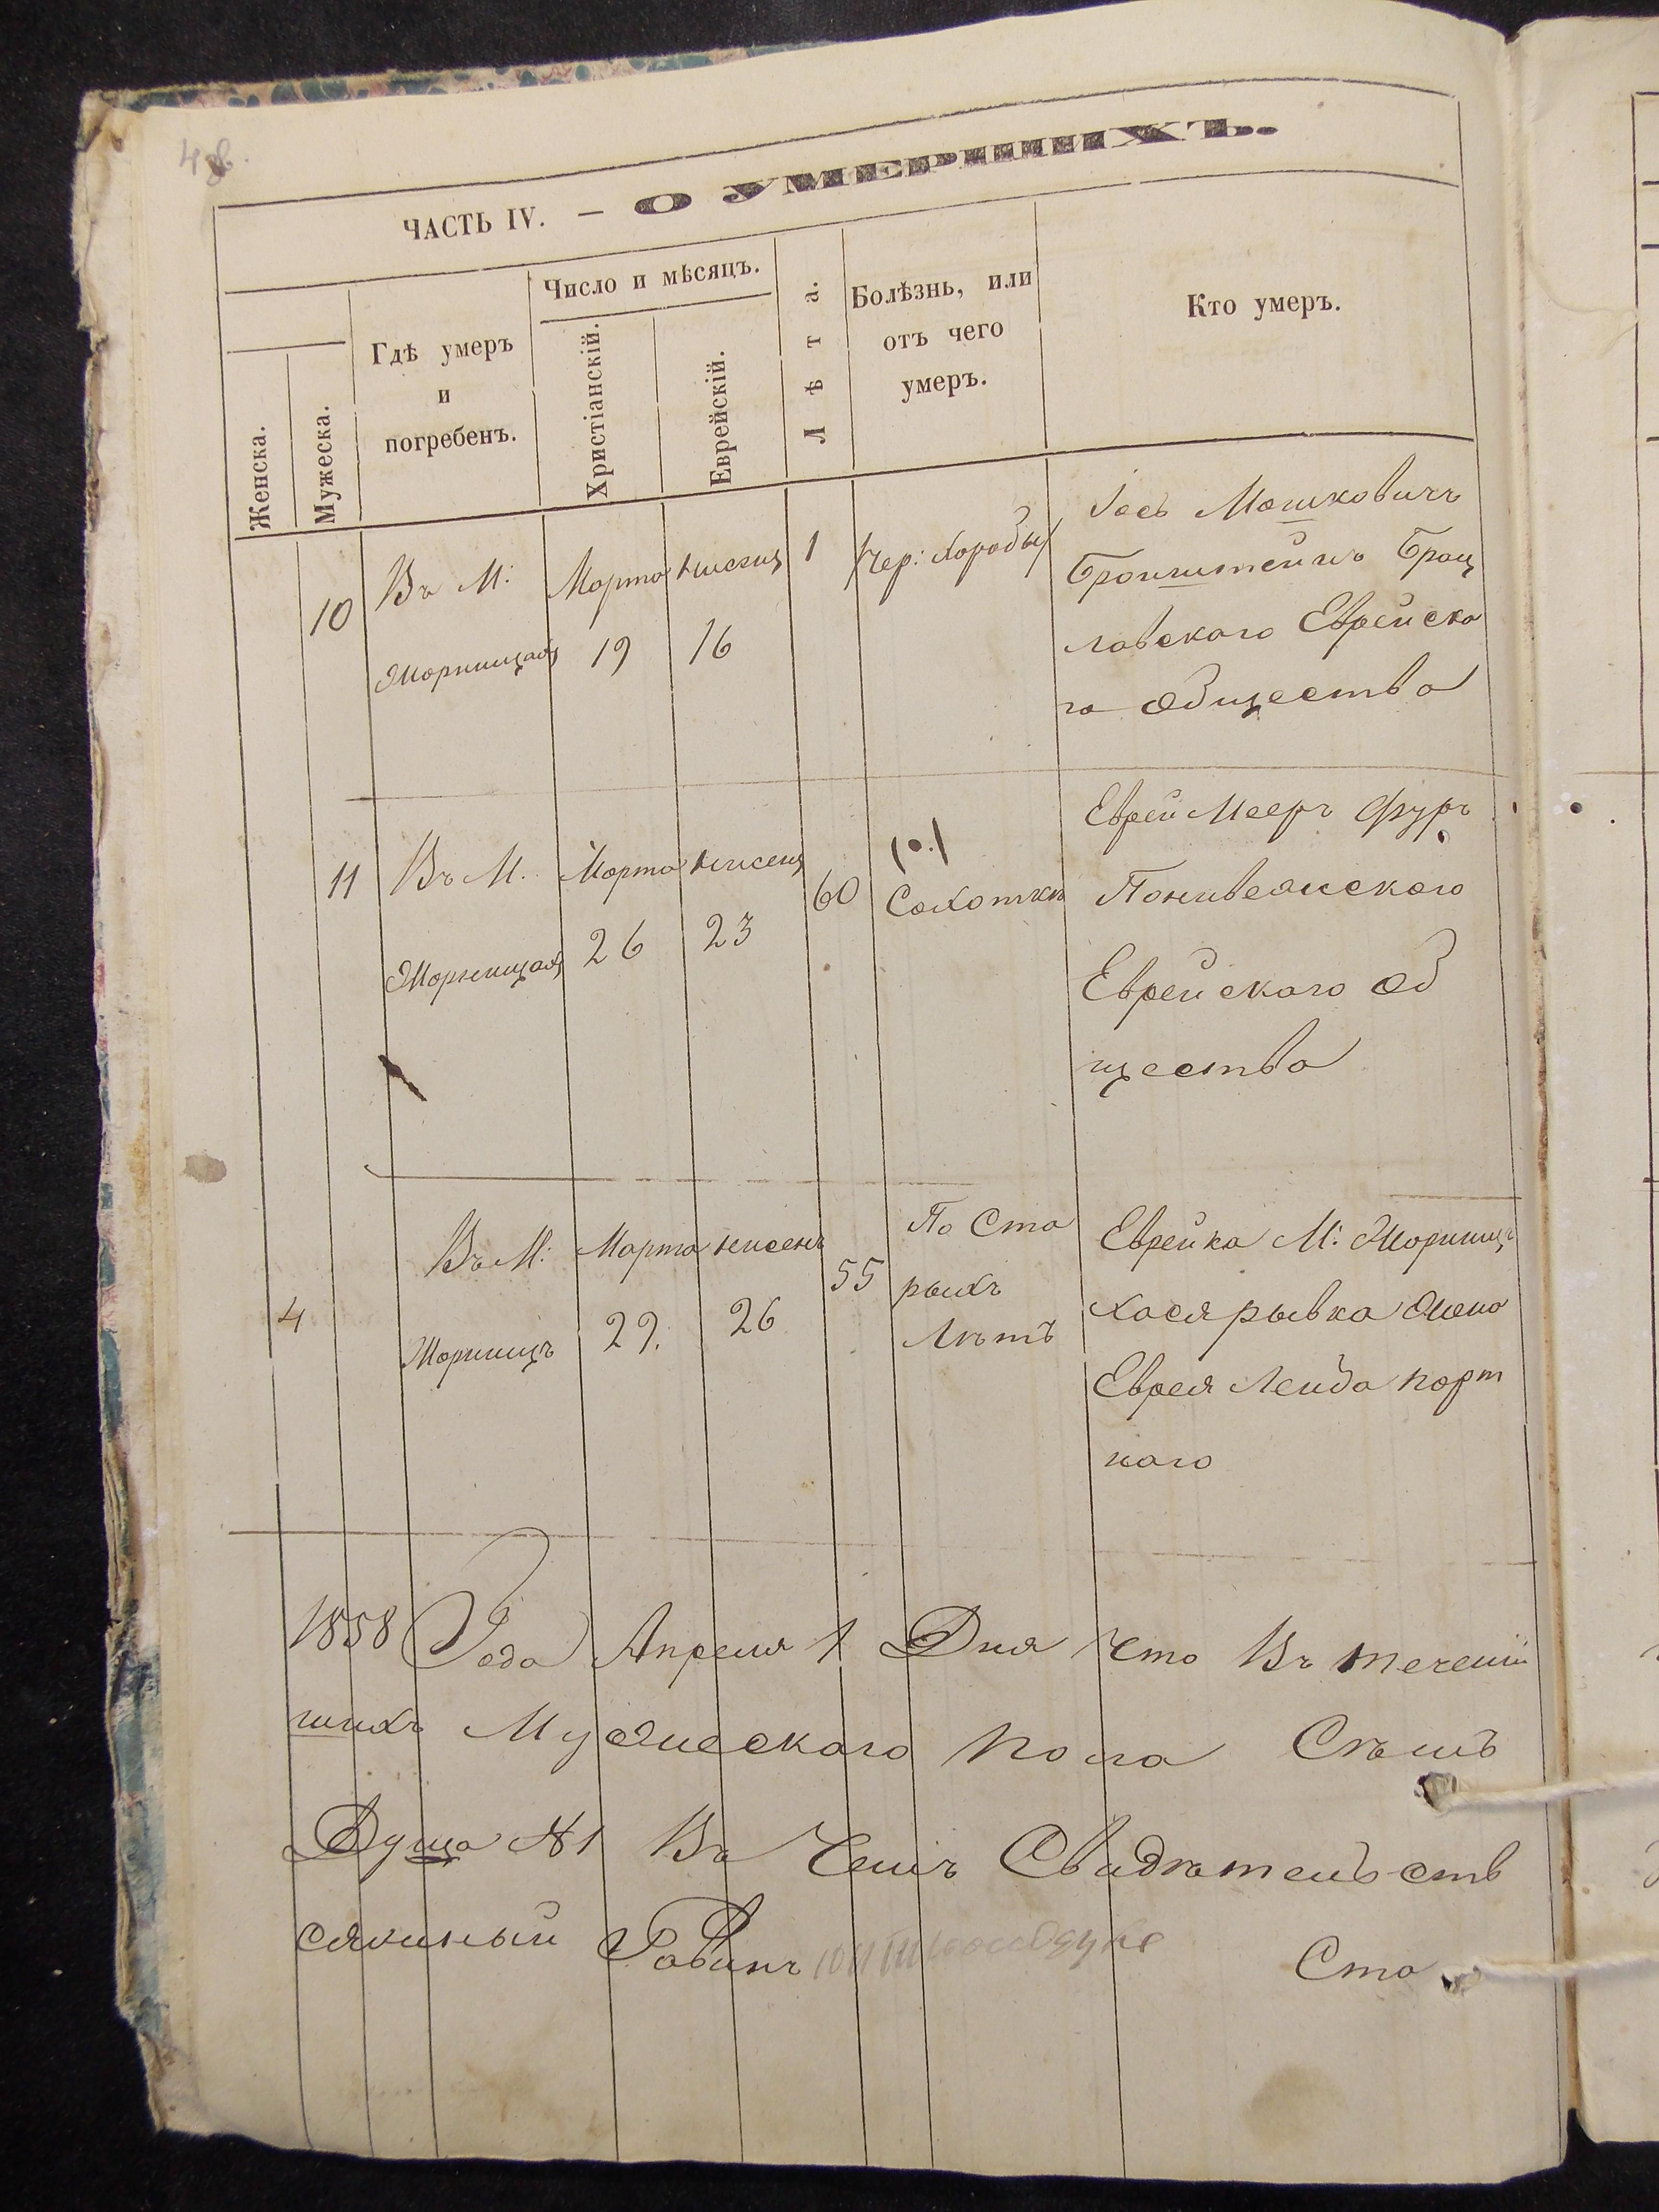 ЧАСТЬ IV. — О УМЕРШИХЪ.
Женска.
Мужеска.
Гдѣ умеръ
и
погребенъ.
Число и мѣсяцъ.
Христіанскій.
Еврейскій.
Лѣта.
Болѣзнь, или
отъ чего
умеръ.
Кто умеръ.
10
Въ М:
Жорнищахъ
Марта
19
16
1
Мошковичъ
Бронштейнъ Брац
лавскаго Еврейска
го Общества
11
Въ М.
Жорнищахъ
Марта
26
23
60
Еврей Мееръ Фуръ
Еврейскаго Об
щества
4
Въ М:
Жорнищъ
Марта
29.
Нисень
26
55
По Ста
рыхъ
Лѣтъ
Еврейка М: Жорнищъ
Хася рывка Жена
Еврея Лейба порт
наго
1858 Года Апреля 1 Дня Что Въ течении
шихъ Мужескаго пола
Душа №1 Въ Чемъ Свидѣтельств
Равинъ